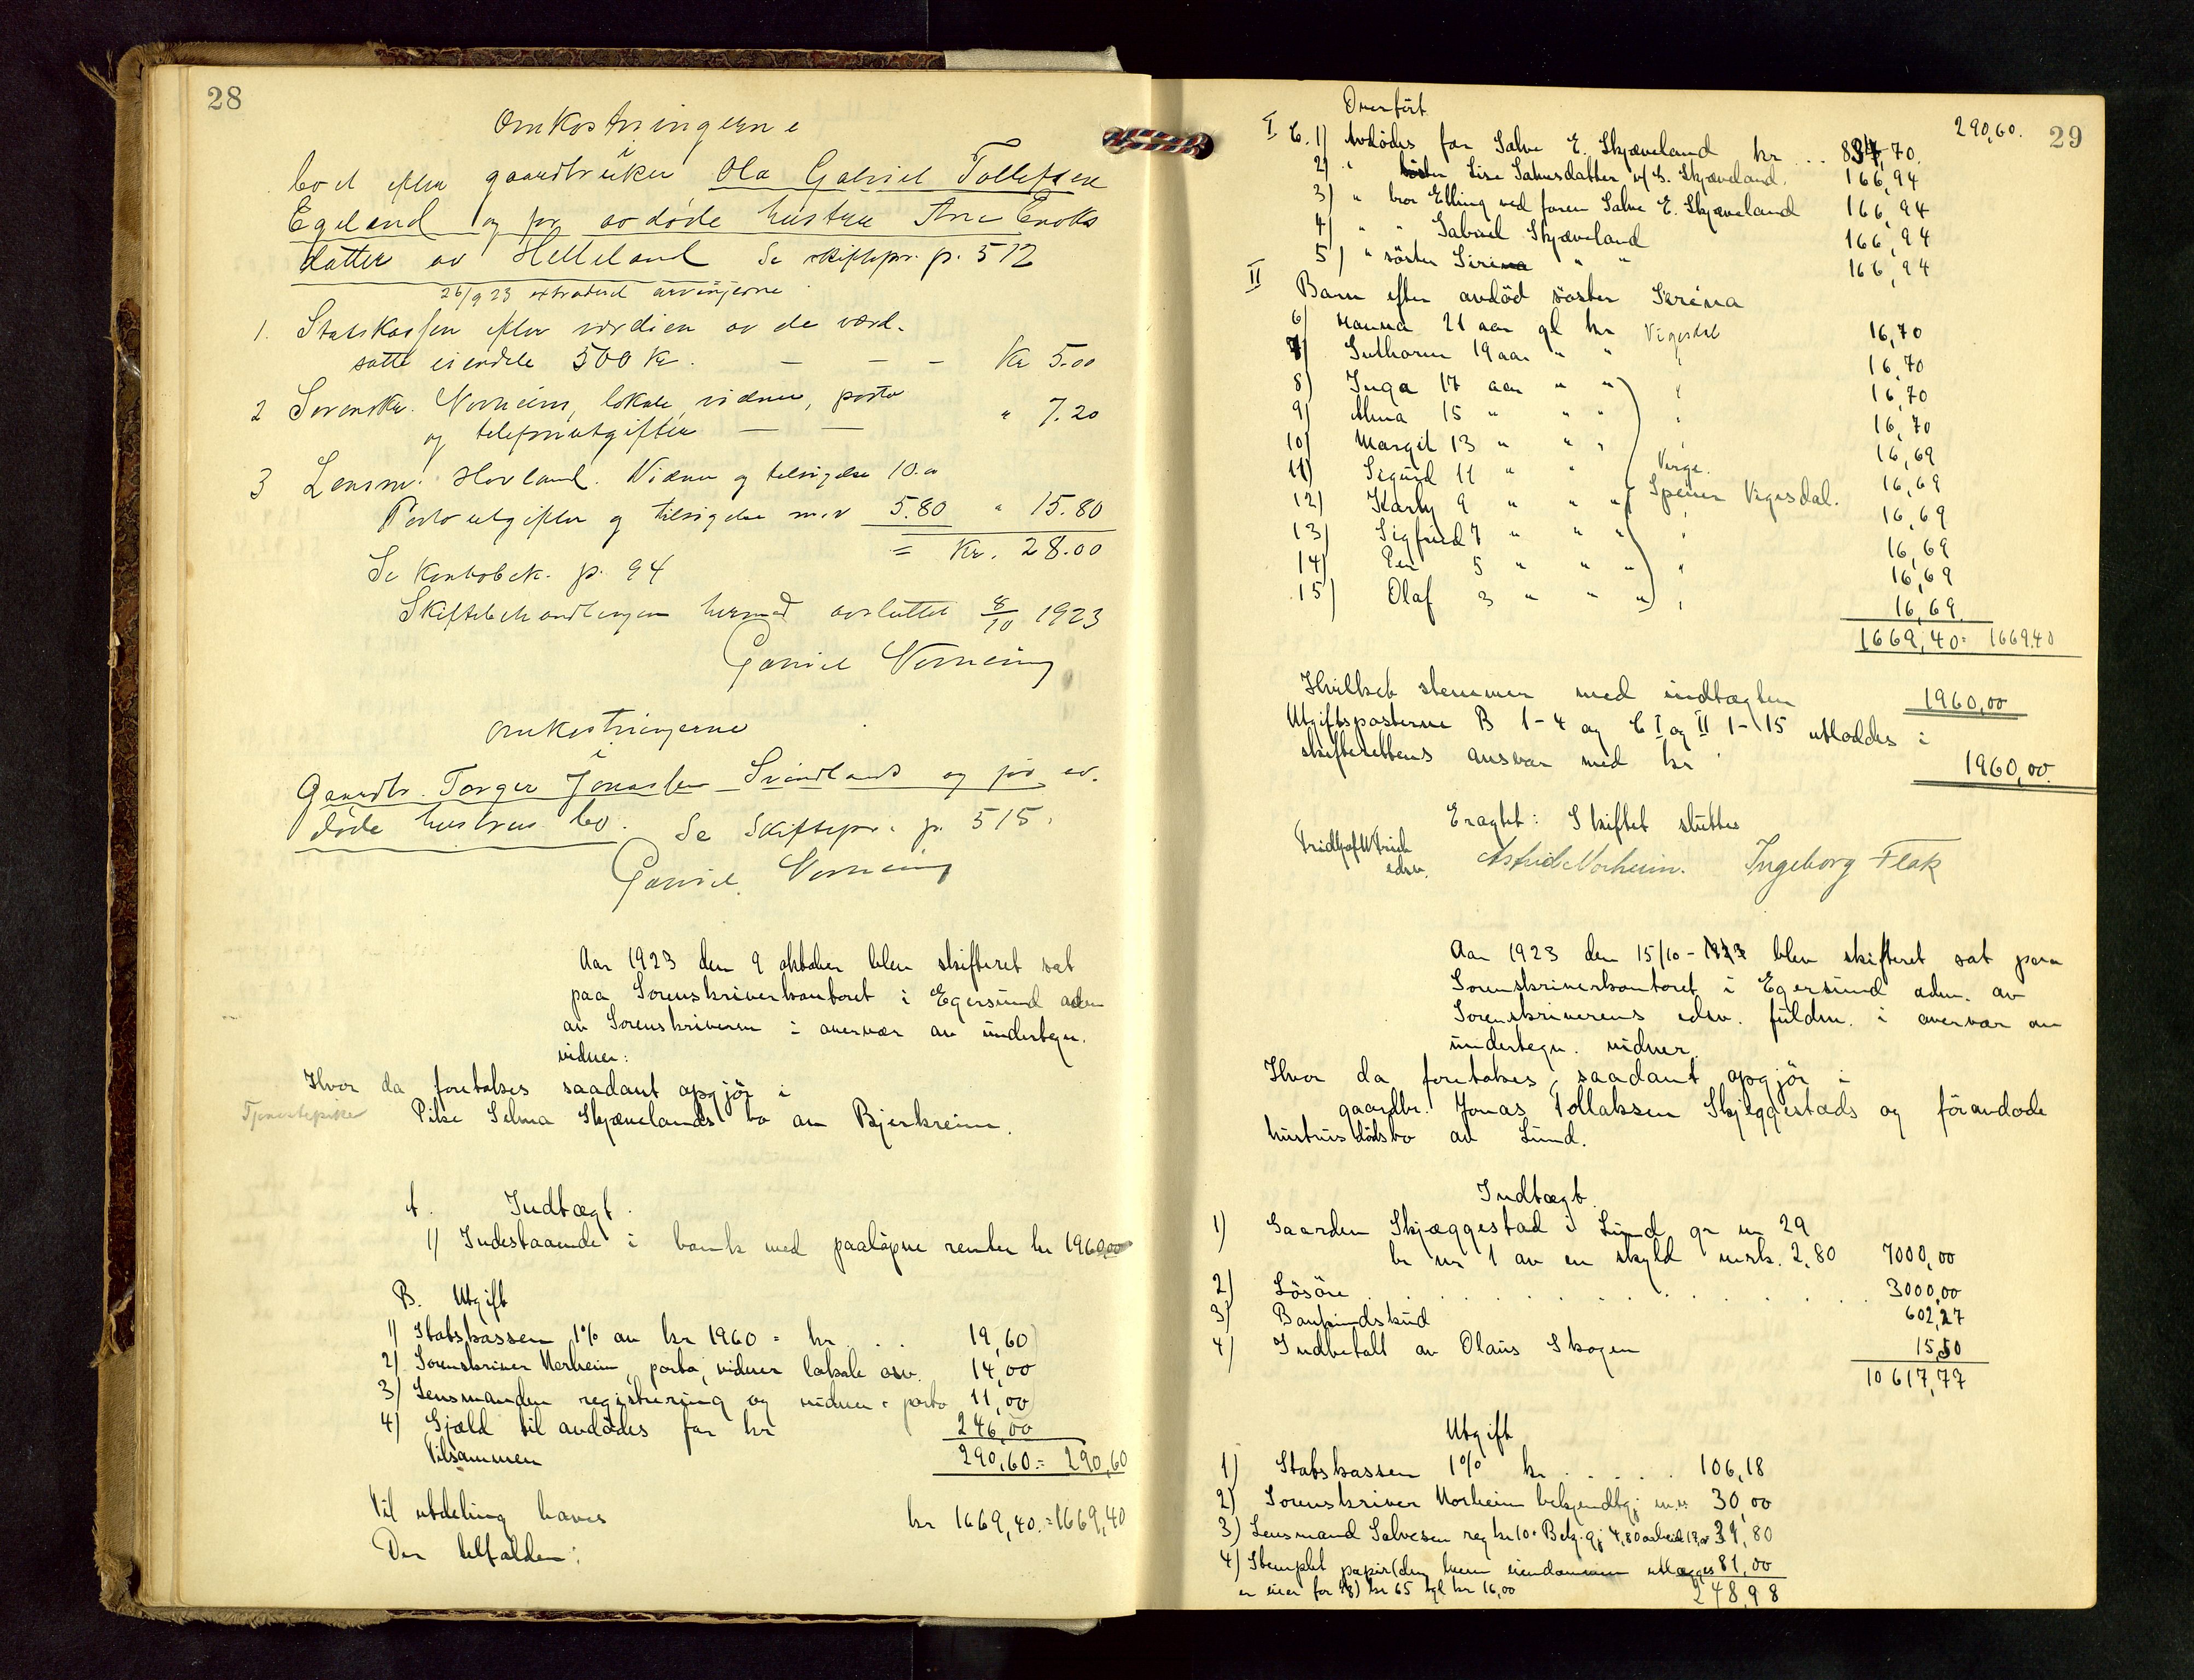 28
Omkostningerne
i
boet efter gaardbruker Ola Gabriel Tollefsen
Egeland og før avdøde hustru Ane Enoks
datter av Helleland Se skiftepr. p. 512
26/9 23 extraderet arvingerne
1. Statskassen efter værdien av de værd-
satte eiendele 500 kr. — — — Kr 5.00
2 Sorenskr. Norheim, lokale, vidner, porto
og telefonutgifter — — " 7.20
3 Lensm. Hovland. Vidner og tilsigelse 10.00
Porto utgifter og tilsigelse m.v 5.80 " 15.80
= Kr. 28.00
Se Kontobok. p. 94
Skiftebehandlingen hermed avsluttet 8/10 1923
Gabriel Norheim
Omkostningerne
i
Gaardbr. Torger Jonassen Svindlands og før av-
døde hustrus bo. Se Skiftepr. p. 515.
Gabriel Norheim
Aar 1923 den 9 oktober blev skifteret sat
paa Sorenskriverkontoret i Egersund adm
av Sorenskriveren i overvær av undertegn.
vidner:
Hvor da foretokes saadant opgjör i
Tjenestepike Pike Selma Skjævelands bo av Bjerkreim.
A. Indtægt.
1) Indestaaende i bank med paaløpne renter kr 1960,00
B. Utgift
1) Statskassen 1% av kr 1960 = kr . . . 19,60
2) Sorenskriver Norheim, porto, vidner lokale osv. 14,00
3) Lensmanden registrering og vidner + porto 11,00
4) Gjæld til avdødes far kr 246,00
Tilsammen 290,60 = 290,60
Til utdeling haves kr 1669,40. = 1669,40
Der tilfalder:
29
Overført 290,60.
I C. 1) Avdødes far Salve E. Skjæveland kr . . 834,70.
2) " söster Lise Salvesdatter v/ S. Skjæveland. 166,94
3) " bror Elling ved faren Salve E. Skjæveland 166,94
4) " " Gabriel Skjæveland 166,94
5) " söster Sirina " " 166,94
II Barn efter avdöd söster Serina
6) Hanna 21 aar gl kr Vigesdal 16,70
7) Guthorm 19 aar " " " 16,70
8) Inga 17 aar " " " 16,70
9) Alma 15 " " " " 16,70
10) Margit 13 " " " " 16,69
11) Sigurd 11 " " Verge. 16,69
12) Karly 9 " " " Spener Vigesdal. 16,69
13) Sigfried 7 " " " " 16,69
14) Per 5 " " " " 16,69
15) Olaf 3 " " " " 16,69
1669,40 = 1669.40
Hvilket stemmer med indtægten 1960,00
Utgiftsposterne B 1-4 og C I og II 1-15 utloddes i
skifterettens ansvar med kr 1960,00.
Eragtet: Skiftet sluttes
Astrid Norheim. Ingeborg Flak
edsv.
Aar 1923 den 15/10 - 1923 blev skifteret sat paa
Sorenskriverkontoret i Egersund adm. av
Sorenskriverens edsv. fuldm. i overvær av
undertegn. vidner.
Hvor da foretokes saadant opgjör i
gaardbr. Jonas Tollaksen Skjeggestads og föravdøde
hustrus dödsbo av Lund.
Indtægt.
1) Gaarden Skjæggestad i Lund gr nr 29
br nr 1 av en skyld mrk. 2,80 7000,00
2) Lösöre . . . . . . . . . . . 3000,00
3) Bankindskud 602,27
4) Indbetalt av Olaus Skogen 15,50
10617,77
Utgift
1) Statskassen 1% kr . . . . . 106,18
2) Sorenskriver Norheim bekjendtgj m.v. 30,00
3) Lensmand Salvesen reg kr 10 + Bekj.gj 4,80 arbeid 17,00 31,80
4) Stemplet papir (den hvem eiendommen utlægges 81,00
er eier for 1/8) kr 65 tgl kr 16,00
248,98